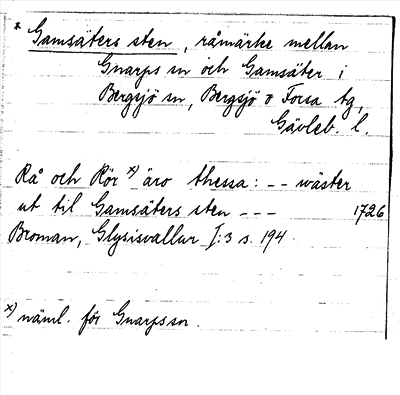 * Gamsäters sten, råmärke mellan
Gnarps sn och Gamsäter i
Bergsjö sn, Bergsjö o Forsa tg,
Gävleb. l.
Rå och Rör x) äro thessa: -- wäster
ut til Gamsäters sten --- 1726
Broman, Glysisvallur I:3 s. 194.
x) näml. för Gnarps sn.